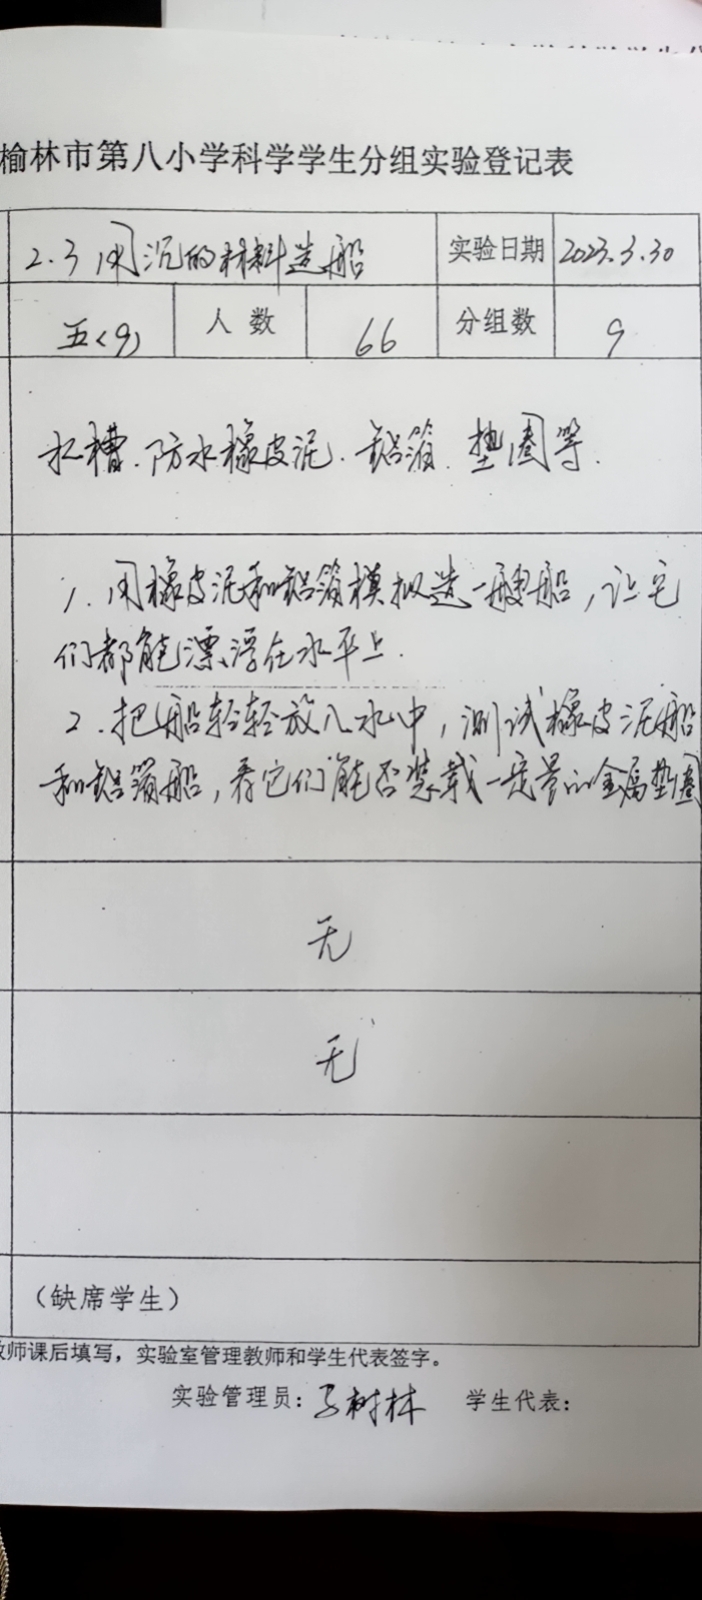 榆林市第八小学科学学生分组实验登记表
2.3 用沉的材料造船 实验日期 2023.3.30
五(9) 人数 66 分组数 9
水槽.防水橡皮泥.铝箔.垫圈等.
1.用橡皮泥和铝箔模拟造一艘船,让它
们都能漂浮在水平上.
2.把船轻轻放入水中,测试橡皮泥船
和铝箔船,看它们能否装载一定量的金属垫圈
无
无
(缺席学生)
教师课后填写,实验室管理教师和学生代表签字。
实验管理员: 树林 学生代表: